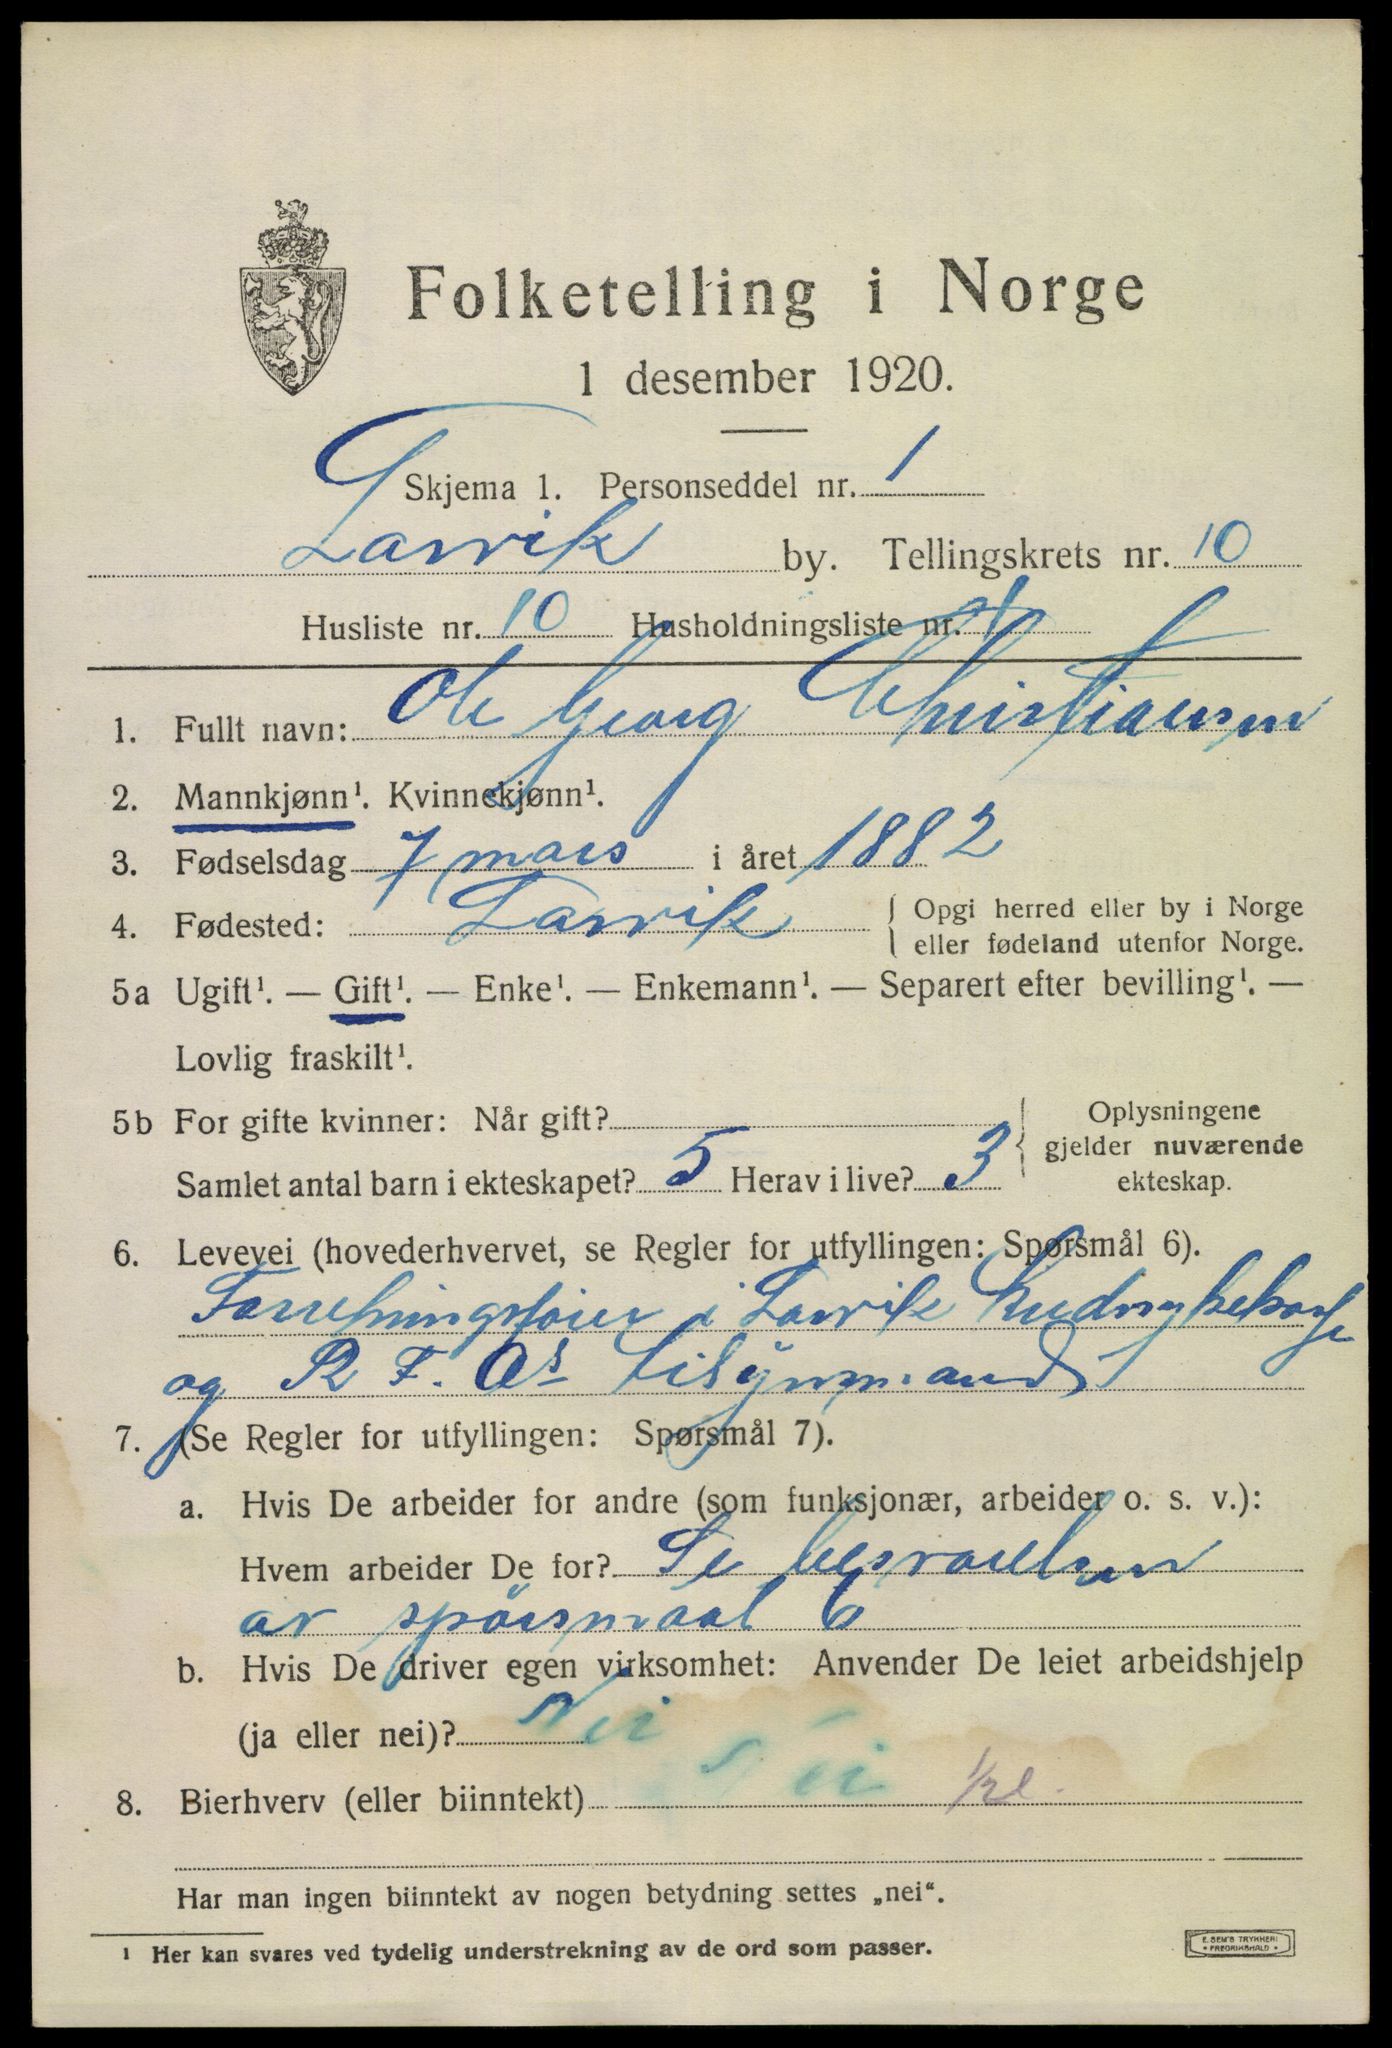 Folketelling i Norge
1 desember 1920.
Skjema 1. Personseddel nr. 1
Larvik by. Tellingskrets nr. 10
Husliste nr. 10 Husholdningsliste nr. 1
1. Fullt navn: Ole Georg Christiansen
2. Mannkjønn¹. Kvinnekjønn¹.
3. Fødselsdag 7 mars i året 1882
4. Fødested: Larvik { Opgi herred eller by i Norge
eller fødeland utenfor Norge.
5a Ugift¹. — Gift¹. — Enke¹. — Enkemann¹. — Separert efter bevilling¹. —
Lovlig fraskilt¹.
5b For gifte kvinner: Når gift?
Samlet antal barn i ekteskapet? 5 Herav i live? 3
{ Oplysningene
gjelder nuværende
ekteskap.
6. Levevei (hovederhvervet, se Regler for utfyllingen: Spørsmål 6).
i Larvik
og R F. tilsynsmand
7. (Se Regler for utfyllingen: Spørsmål 7).
a. Hvis De arbeider for andre (som funksjonær, arbeider o. s. v.):
Hvem arbeider De for? Se besvarelsen
av spörsmaal 6
b. Hvis De driver egen virksomhet: Anvender De leiet arbeidshjelp
(ja eller nei)? Nei
8. Bierhverv (eller biinntekt) Nei
Har man ingen biinntekt av nogen betydning settes „nei“.
¹ Her kan svares ved tydelig understrekning av de ord som passer.
E. SEM'S TRYKKERI
• FREDRIKSHALD •